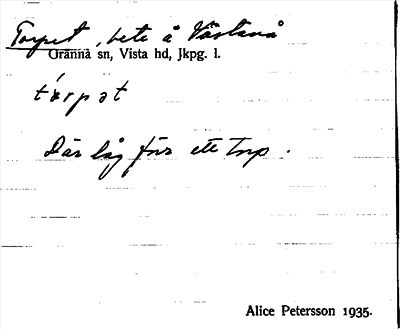 Torpet, bete å Västanå
Gränna sn, Vista hd, Jkpg. l.
tórpət
Där låg förr ett torp.
Alice Petersson 1935.